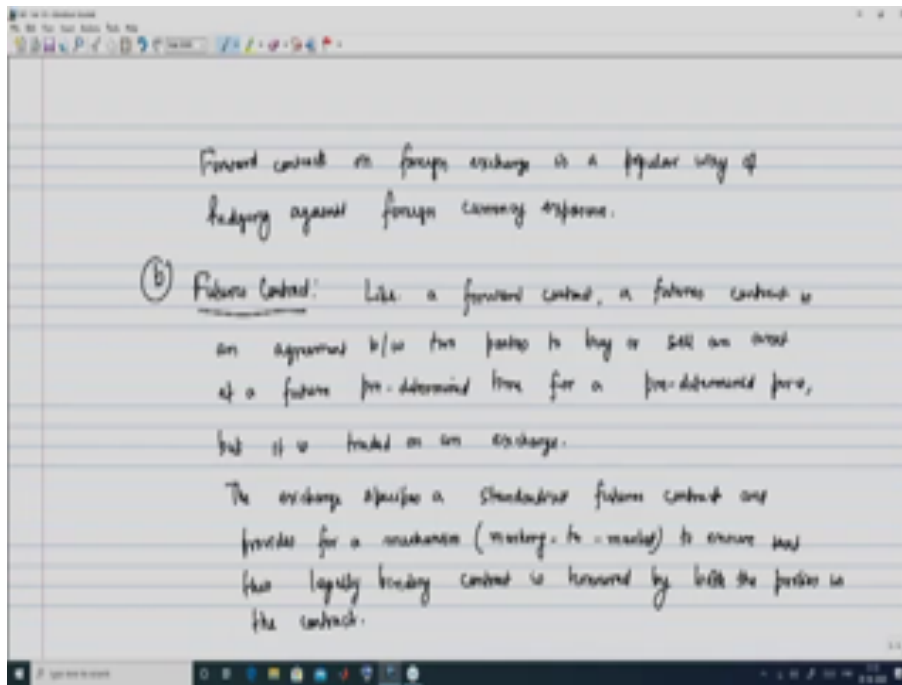 Forward contract on foreign exchange is a popular way of
hedging against foreign currency exposure.
(b) Futures Contract: Like a forward contract, a futures contract is
an agreement b/w two parties to buy or sell an asset
at a future pre-determined time for a pre-determined price,
but it is traded on an exchange.
The exchange specifies a standardized futures contract and
provides for a mechanism (marking-to-market) to ensure that
this legally binding contract is honoured by both the parties in
the contract.